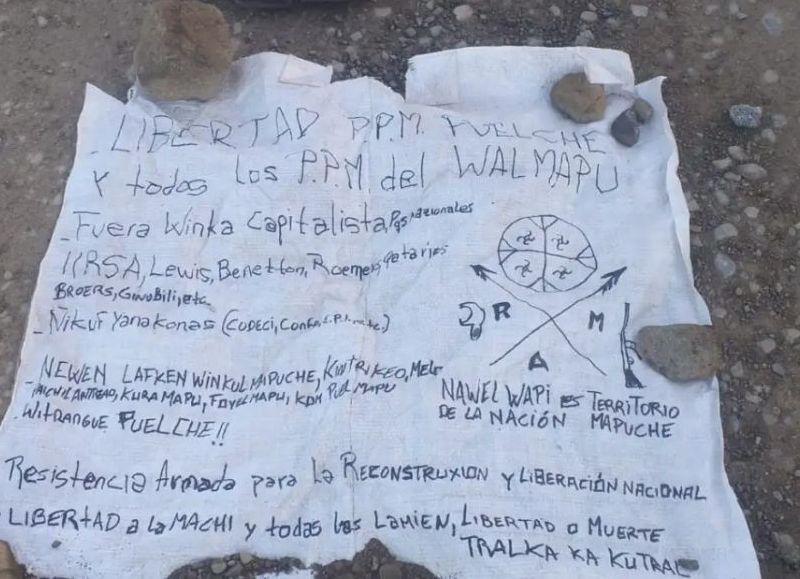 - LIBERTAD P.P.M. PUELCHE
Y todos los P.P.M del WALMAPU
- Fuera Winka Capitalista, Pqs nazionales
IIRSA, Lewis, Benetton, Roemers, qataries
BROERS, GINOBili, etc
- Nikuf Yanakonas (CODECI,
- NEWEN LAFKEN WINKULMAPUCHE, KINTRIKEO,
KURAMAPU, FOYELMAPU, PUELMAPU
- WITRANGUE PUELCHE!!
R M
A
NAWEL WAPI es TERRITORIO
DE LA NACIÓN MAPUCHE
Resistencia Armada para la RECONSTRUXION y LIBERACIÓN NACIONAL
LIBERTAD a la MACHI y todas las LAMIEN, LIBERTAD O MUERTE
TRALKA KA KUTRAL